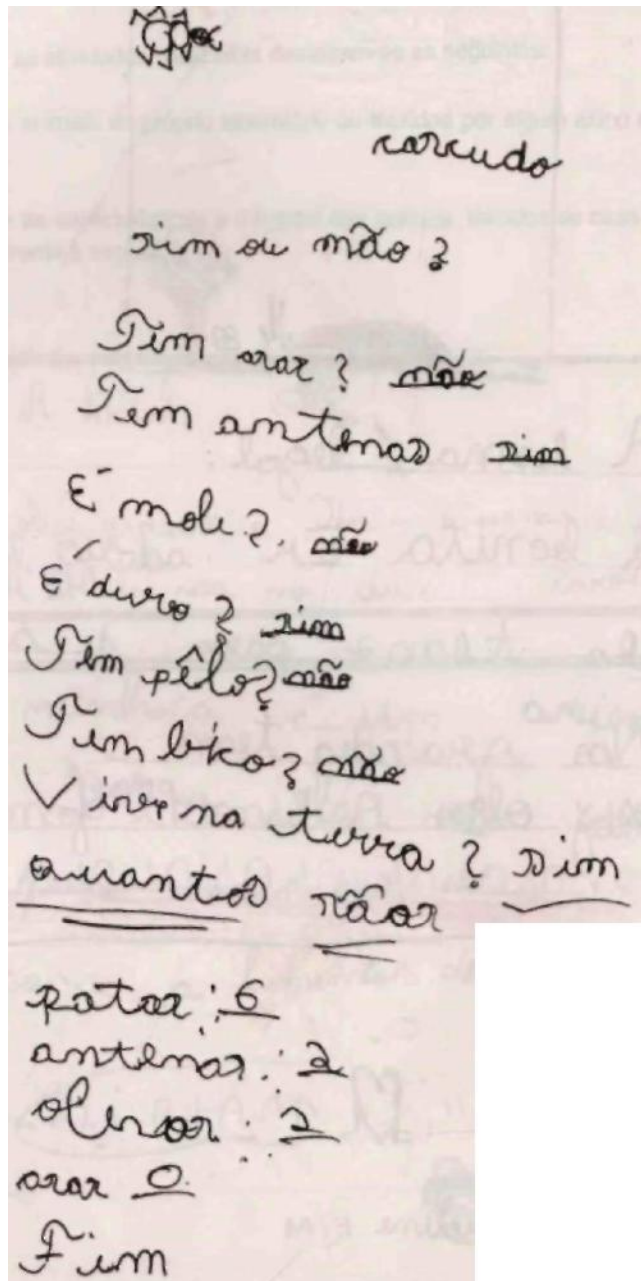 carcudo
sim ou não?
Tem asas? não
Tem antenas sim
É mole?. não
É duro? sim
Têm pêlo? não
Tem biko? não
Vive na terra? sim
quantos são
patas: 6
antenas: 2
olhos: 2
asas 0
Fim